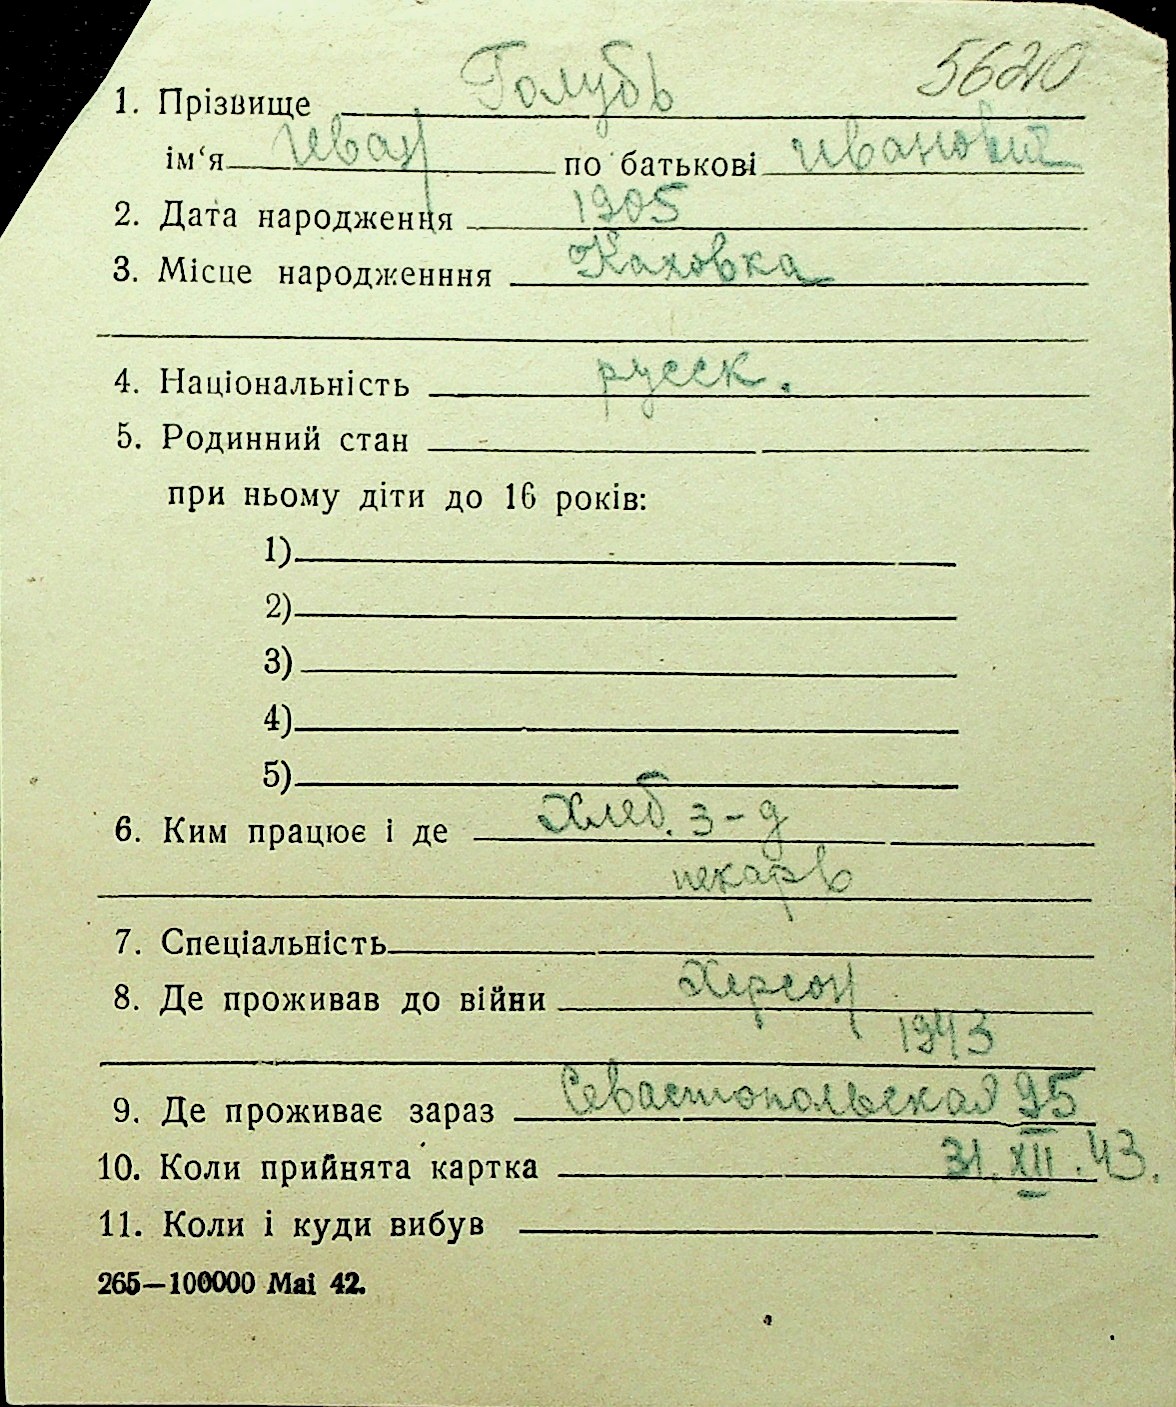 5620
1. Прізвище Голубь
ім‘я Иван по батькові Иванович
2. Дата народження 1905
3. Місце народженння Каховка
4. Національність русск.
5. Родинний стан
при ньому діти до 16 років:
1)
2)
3)
4)
5)
6. Ким працює і де Хлеб. з-д
пекарь
7. Спеціальність
8. Де проживав до війни Херсон
1943
9. Де проживає зараз Севастопольская 95
10. Коли прийнята картка 31.XII.43.
11. Коли і куди вибув
265—100000 Mai 42.